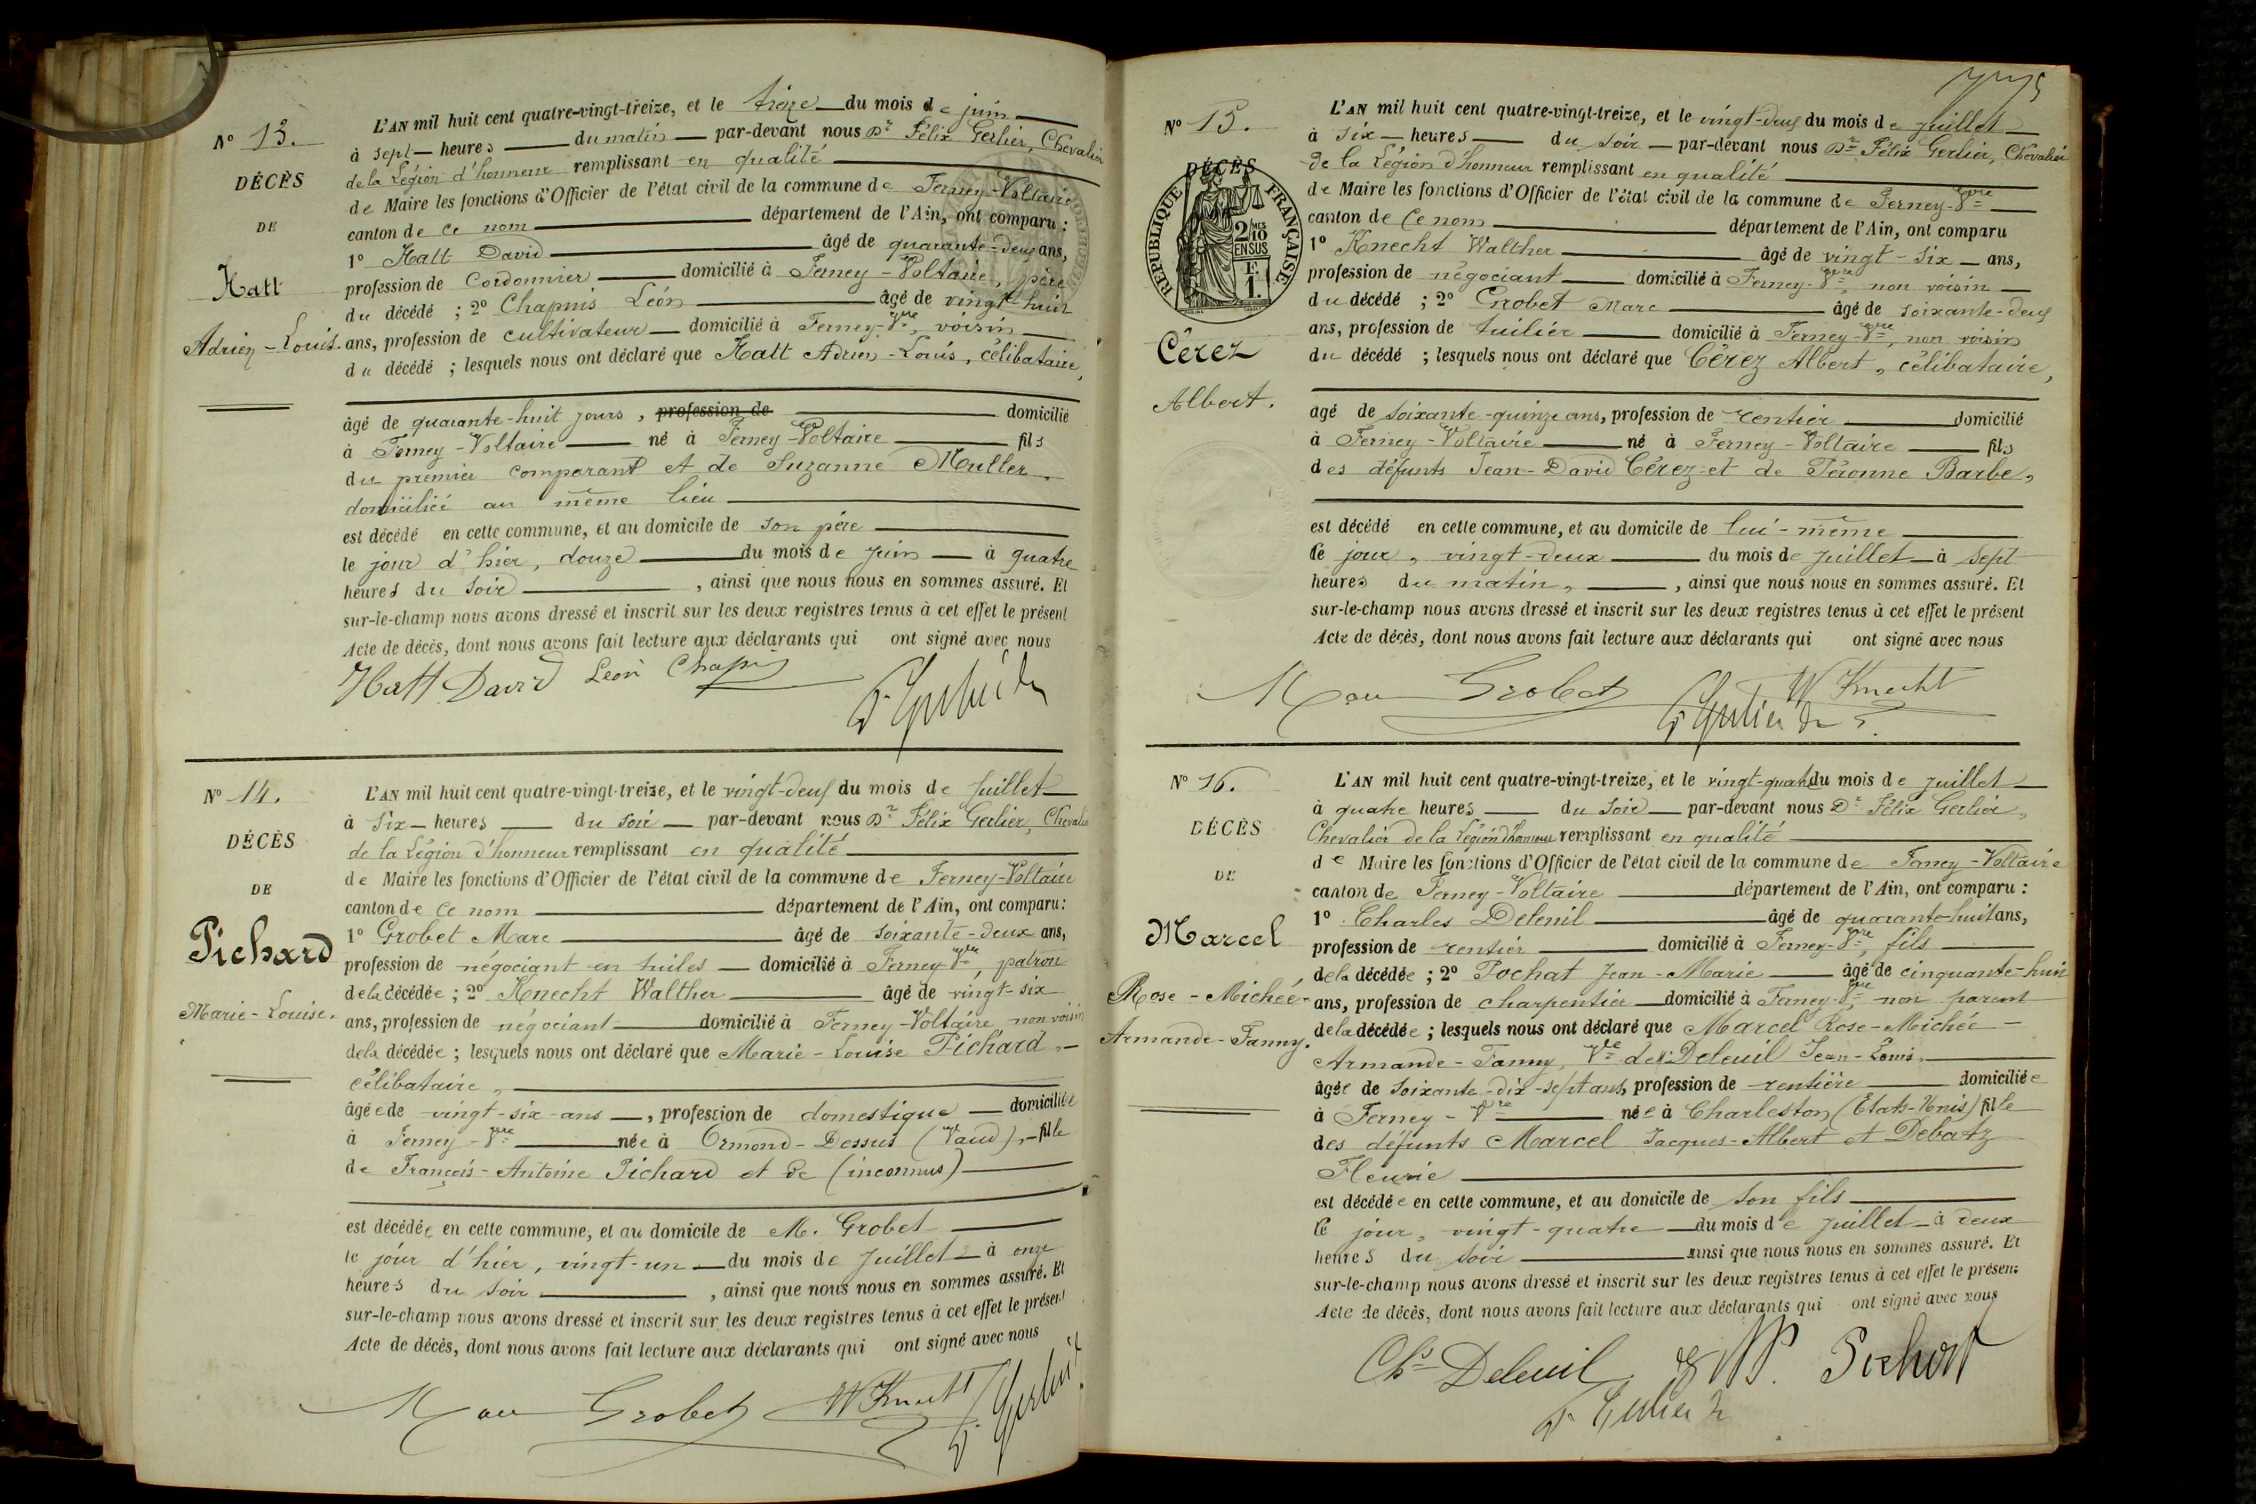 N° 13.
DÉCÈS
DE
Hatt
Adrien-Louis.
L'AN mil huit cent quatre-vingt-treize, et le treize du mois de juin
à sept heures du matin par-devant nous Dr Félix Gerlier, Chevalier
de la Légion d'honneur remplissant en qualité
de Maire les fonctions d'Officier de l'état civil de la commune de Ferney-Voltaire
canton de ce nom département de l'Ain, ont comparu :
1° Hatt David âgé de quarante-deux ans,
profession de Cordonnier domicilié à Ferney-Voltaire, père
du décédé ; 2° Chapuis Léon âgé de vingt-huit
ans, profession de cultivateur domicilié à Ferney-Vre, voisin
du décédé ; lesquels nous ont déclaré que Hatt Adrien-Louis, célibataire,
âgé de quarante-huit jours, profession de domicilié
à Ferney-Voltaire né à Ferney-Voltaire fils
du premier comparant et de Suzanne Muller
domiciliée au même lieu
est décédé en cette commune, et au domicile de son père
le jour d'hier, douze du mois de juin à quatre
heures du soir, ainsi que nous nous en sommes assuré. Et
sur-le-champ nous avons dressé et inscrit sur les deux registres tenus à cet effet le présent
Acte de décès, dont nous avons fait lecture aux déclarants qui ont signé avec nous
Hatt David Léon Chapuis
Dr Gerlier
N° 14.
DÉCÈS
DE
Pichard
Marie-Louise.
L'AN mil huit cent quatre-vingt-treize, et le vingt-deux du mois de juillet
à six heures du soir par-devant nous Dr Félix Gerlier, Chevalier
de la Légion d'honneur remplissant en qualité
de Maire les fonctions d'Officier de l'état civil de la commune de Ferney-Voltaire
canton de ce nom département de l'Ain, ont comparu :
1° Grobet Marc âgé de soixante-deux ans,
profession de négociant en tuiles domicilié à Ferney-Vre, patron
de la décédée ; 2° Knecht Walther âgé de vingt-six
ans, profession de négociant domicilié à Ferney-Voltaire non voisin
de la décédée ; lesquels nous ont déclaré que Marie-Louise Pichard,
célibataire,
âgée de vingt-six ans, profession de domestique domiciliée
à Ferney-Vre née à Ormond-Dessus (Vaud), fille
de François-Antoine Pichard et de (inconnus)
est décédée en cette commune, et au domicile de M. Grobet
le jour d'hier, vingt-un du mois de juillet à onze
heures du soir, ainsi que nous nous en sommes assuré. Et
sur-le-champ nous avons dressé et inscrit sur les deux registres tenus à cet effet le présent
Acte de décès, dont nous avons fait lecture aux déclarants qui ont signé avec nous
Marc Grobet W Knecht Dr Gerlier
N° 15.
DÉCÈS
RÉPUBLIQUE FRANÇAISE
2/10 MES
EN SUS
F.
1.
Cérez
Albert.
L'AN mil huit cent quatre-vingt-treize, et le vingt-deux du mois de juillet
à six heures du soir par-devant nous Dr Félix Gerlier, Chevalier
de la Légion d'honneur remplissant en qualité
de Maire les fonctions d'Officier de l'état civil de la commune de Ferney-Vre
canton de ce nom département de l'Ain, ont comparu
1° Knecht Walther âgé de vingt-six ans,
profession de négociant domicilié à Ferney-Vre, non voisin
du décédé ; 2° Grobet Marc âgé de soixante-deux
ans, profession de tuilier domicilié à Ferney-Vre, non voisin
du décédé ; lesquels nous ont déclaré que Cérez Albert, célibataire,
âgé de soixante-quinze ans, profession de rentier domicilié
à Ferney-Voltaire né à Ferney-Voltaire fils
des défunts Jean-David Cérez et de Péronne Barbe,
est décédé en cette commune, et au domicile de lui-même
ce jour, vingt-deux du mois de juillet à sept
heures du matin, ainsi que nous nous en sommes assuré. Et
sur-le-champ nous avons dressé et inscrit sur les deux registres tenus à cet effet le présent
Acte de décès, dont nous avons fait lecture aux déclarants qui ont signé avec nous
Marc Grobet W Knecht
Dr Gerlier
N° 16.
DÉCÈS
DE
Marcel
Rose-Michée-
Armande-Fanny.
L'AN mil huit cent quatre-vingt-treize, et le vingt-quatre du mois de juillet
à quatre heures du soir par-devant nous Dr Félix Gerlier,
Chevalier de la Légion d'honneur remplissant en qualité
de Maire les fonctions d'Officier de l'état civil de la commune de Ferney-Voltaire
canton de Ferney-Voltaire département de l'Ain, ont comparu :
1° Charles Deleuil âgé de quarante-huit ans,
profession de rentier domicilié à Ferney-Vre, fils
de la décédée ; 2° Pochat Jean-Marie âgé de cinquante-huit
ans, profession de charpentier domicilié à Ferney-Vre non parent
de la décédée ; lesquels nous ont déclaré que Marcel Rose-Michée-
Armande-Fanny, Vve de Deleuil Jean-Louis,
âgée de soixante-dix-sept ans, profession de rentière domiciliée
à Ferney-Vre née à Charleston (Etats-Unis) fille
des défunts Marcel Jacques-Albert et Debatz
Fleurie
est décédée en cette commune, et au domicile de son fils
ce jour, vingt-quatre du mois de juillet à deux
heures du soir ainsi que nous nous en sommes assuré. Et
sur-le-champ nous avons dressé et inscrit sur les deux registres tenus à cet effet le présent
Acte de décès, dont nous avons fait lecture aux déclarants qui ont signé avec nous
Chs Deleuil
Dr Gerlier